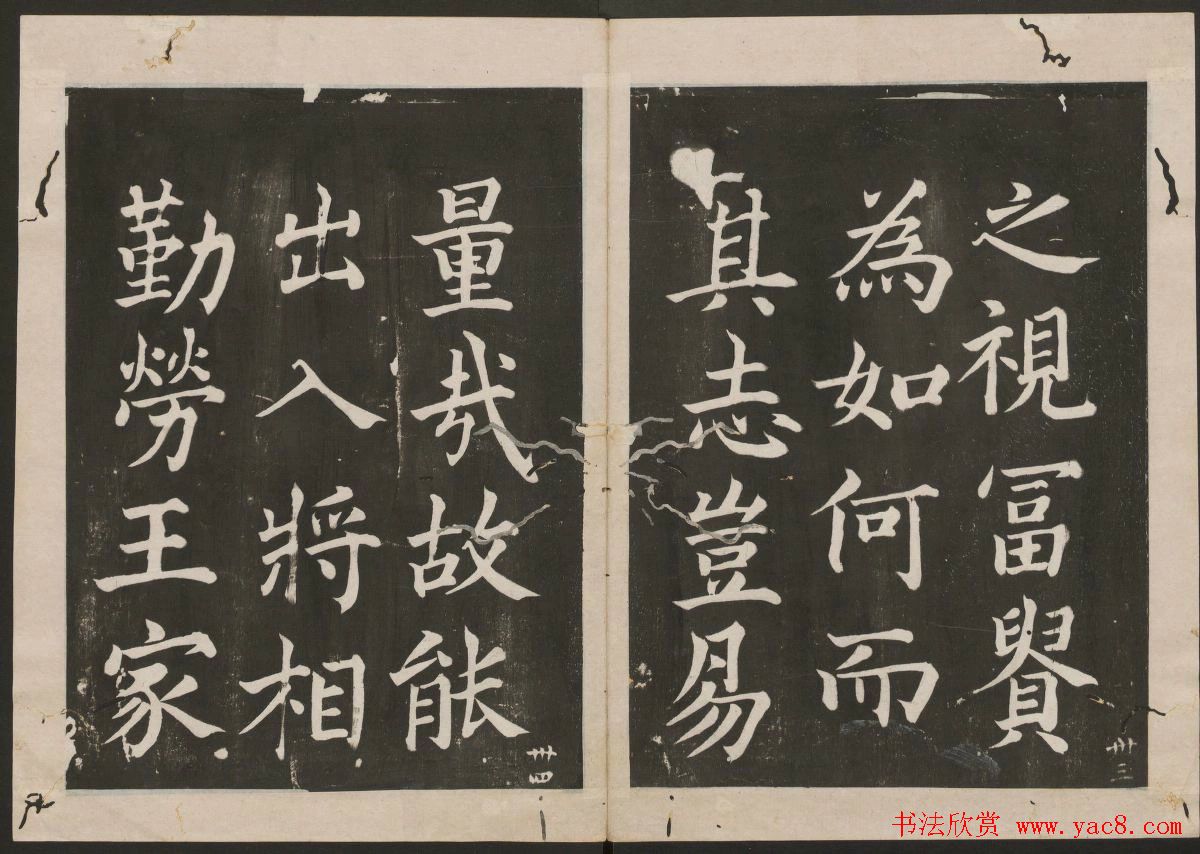 之視冨貴
為如何而
其志豈易
卅三
量哉故能
出入將相
勤勞王家
卅四
书法欣赏 www.yac8.com